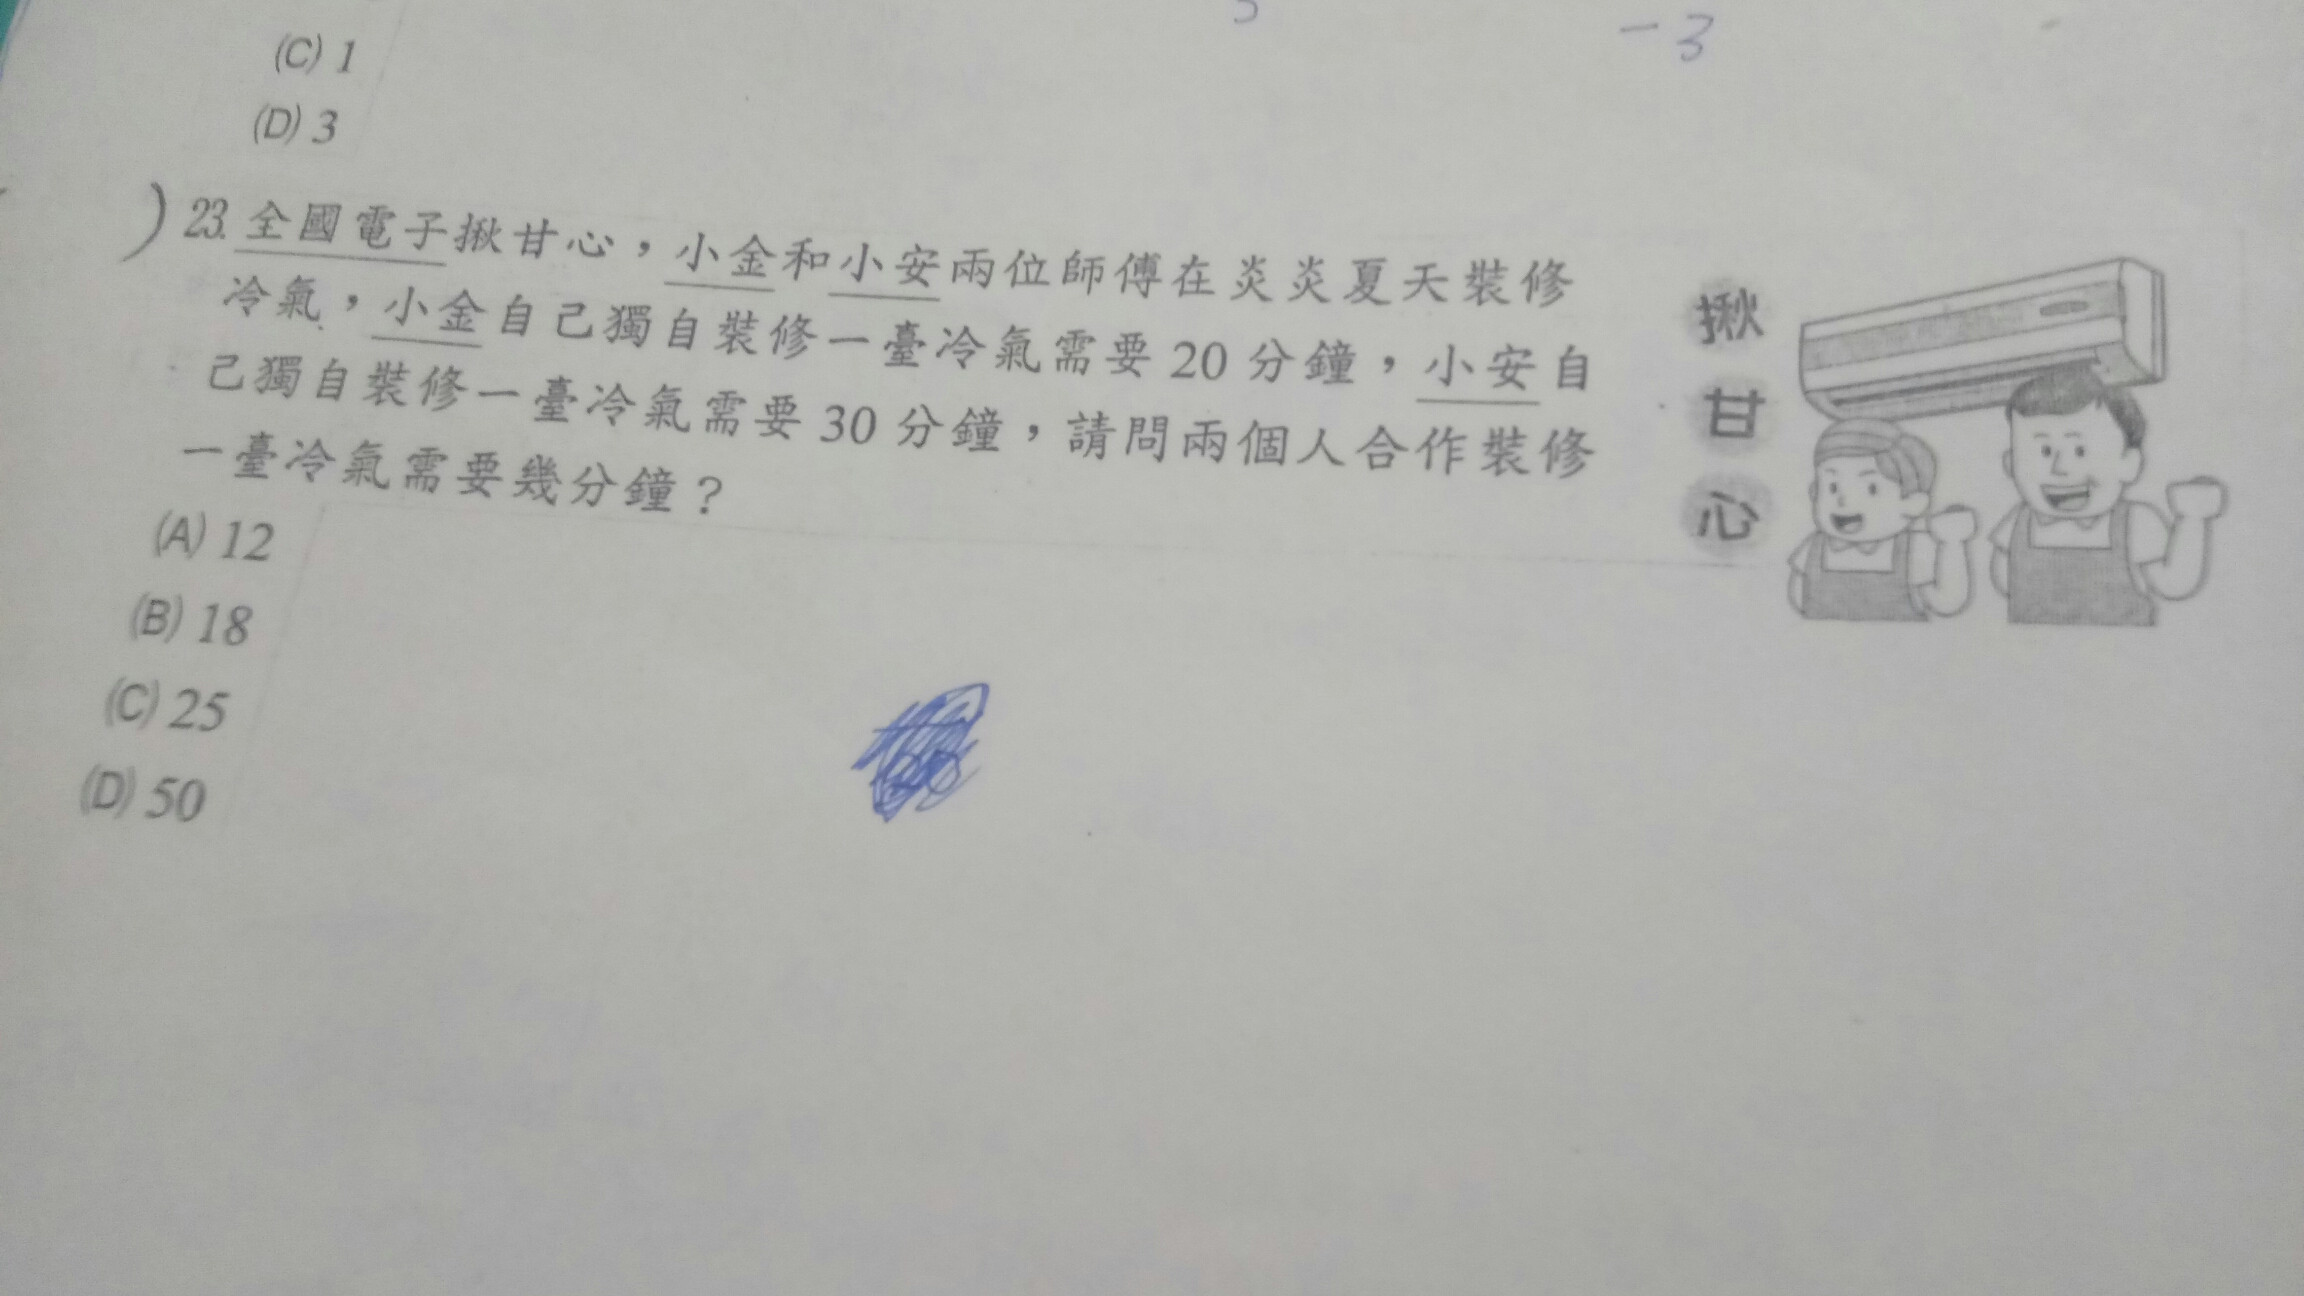 (C) 1
-3
(D) 3
) 23. 全國電子揪甘心，小金和小安兩位師傅在炎炎夏天裝修
冷氣，小金自己獨自裝修一臺冷氣需要 20 分鐘，小安自
己獨自裝修一臺冷氣需要 30 分鐘，請問兩個人合作裝修
一臺冷氣需要幾分鐘？
(A) 12
(B) 18
(C) 25
(D) 50
揪
甘
心